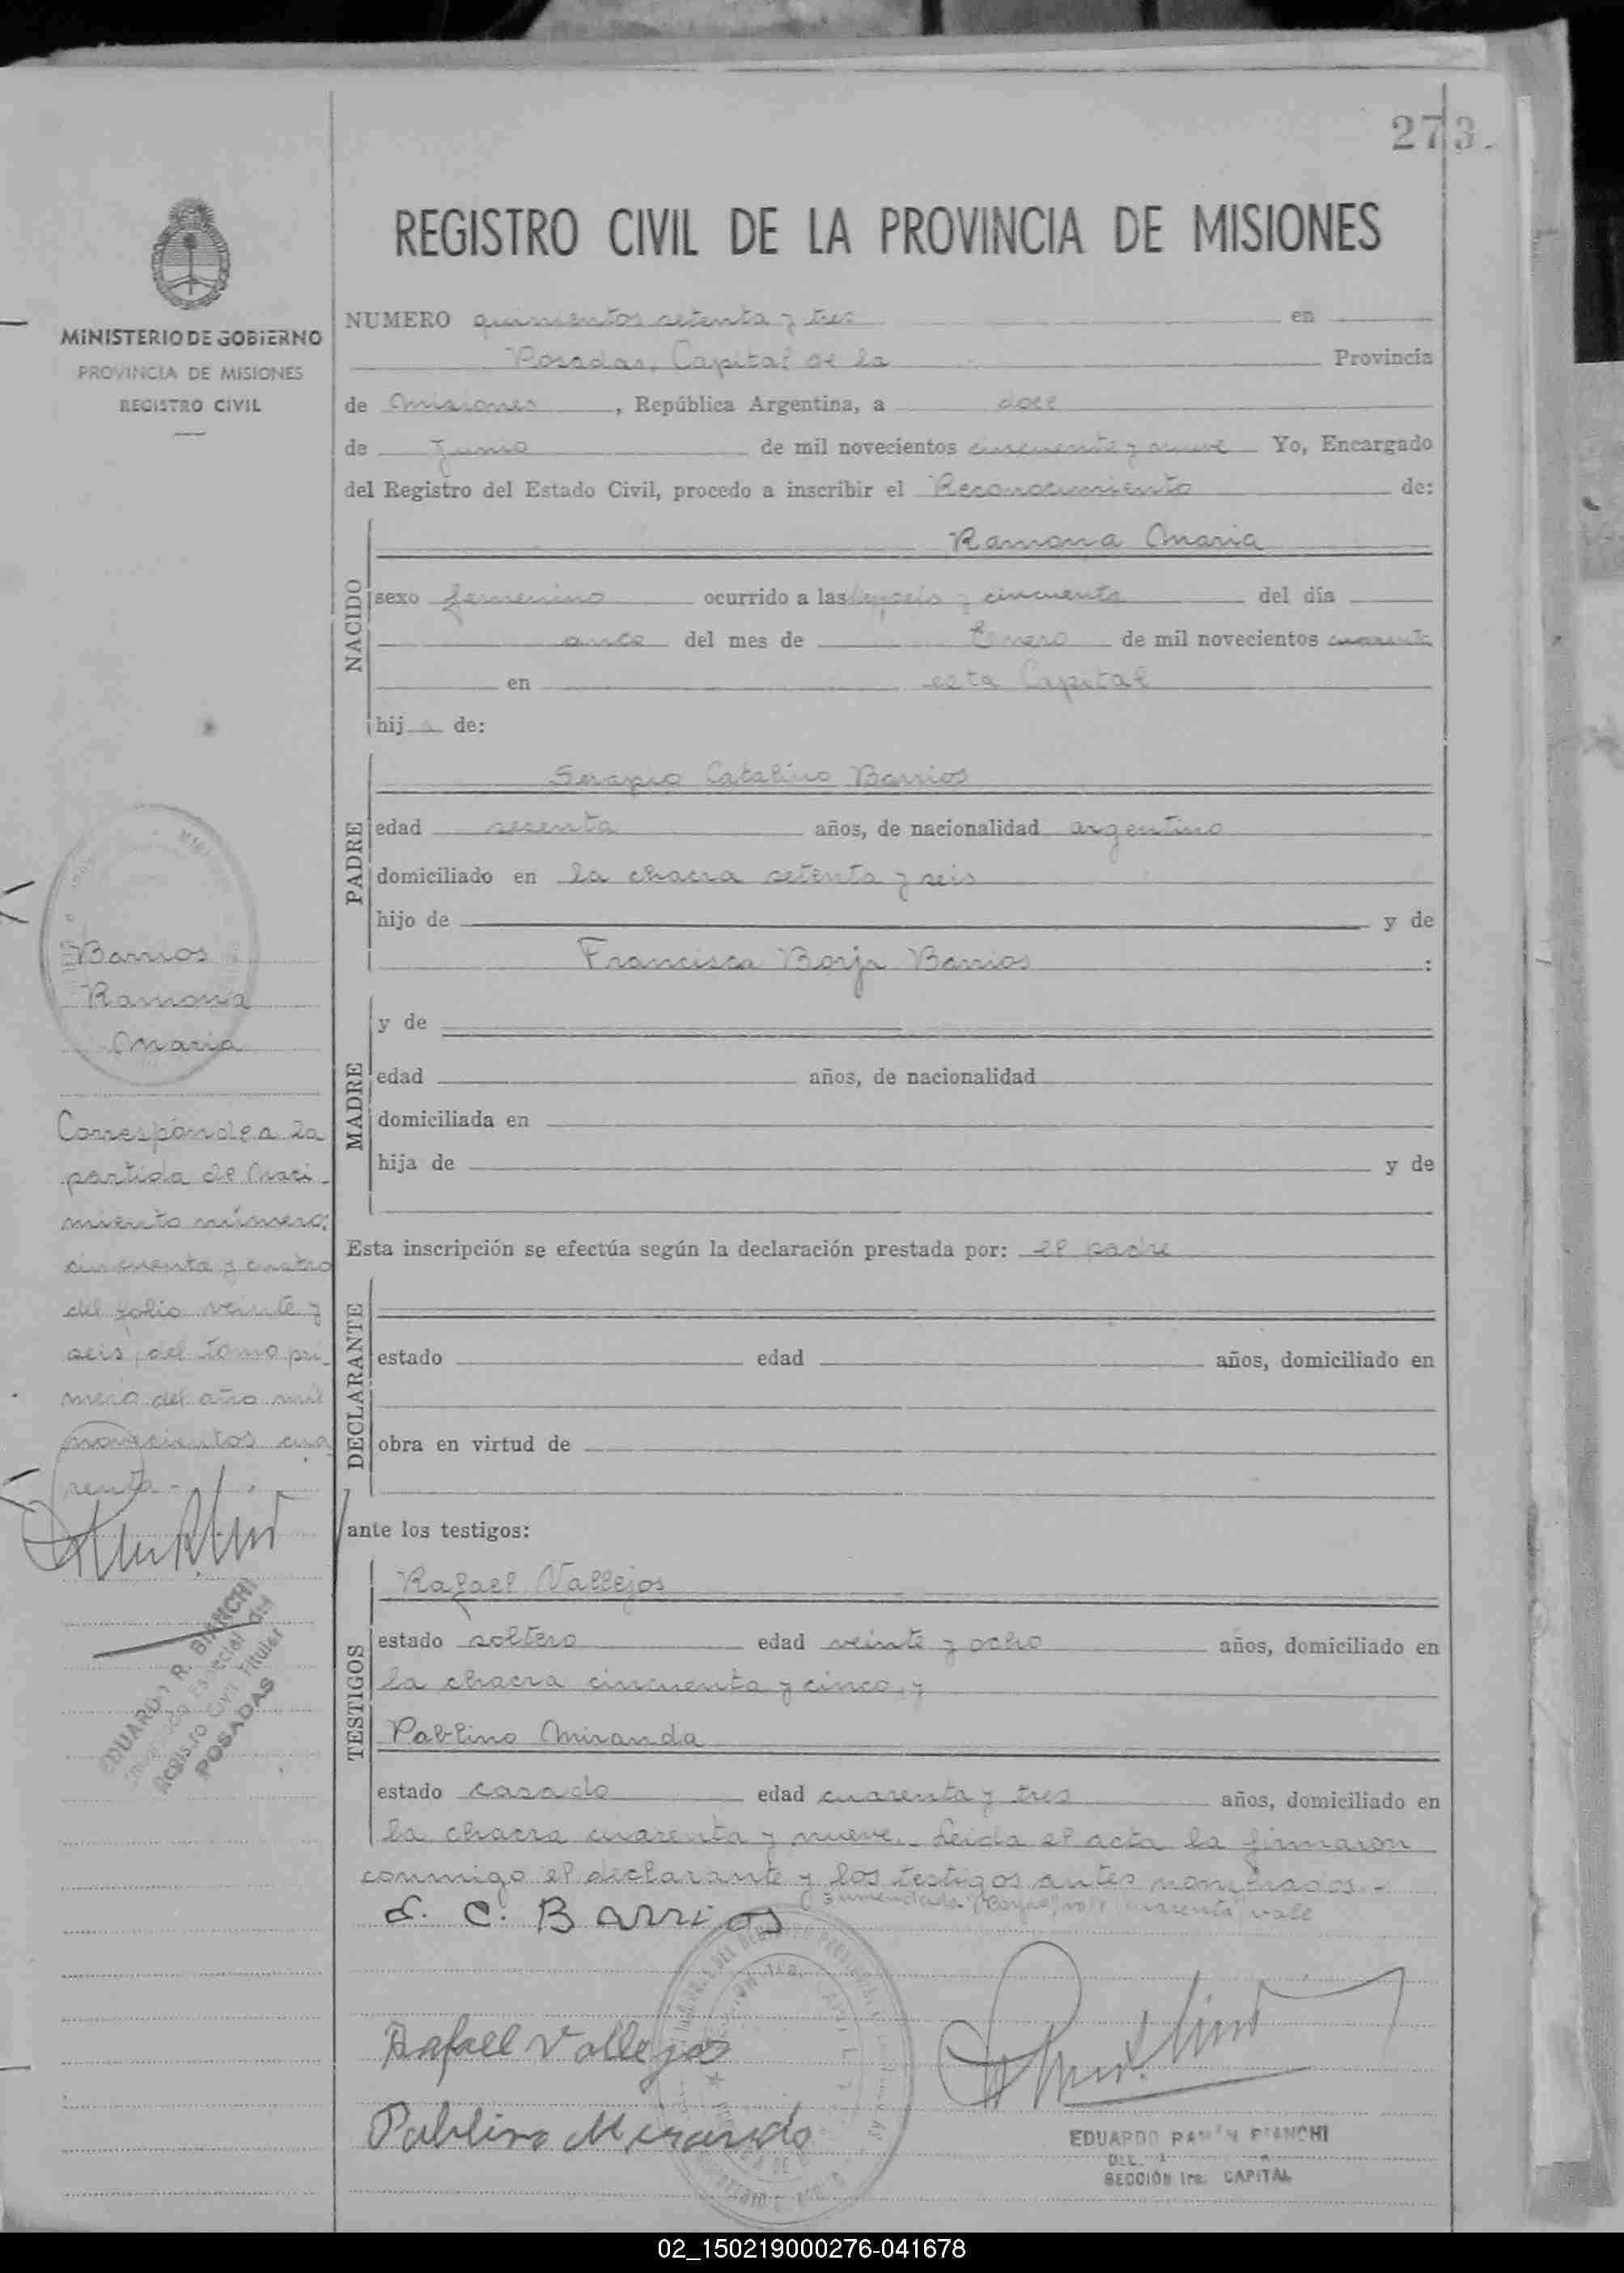 273.
REGISTRO CIVIL DE LA PROVINCIA DE MISIONES
MINISTERIO DE GOBIERNO
PROVINCIA DE MISIONES
REGISTRO CIVIL
NUMERO quinientos setenta y tres en
Posadas, Capital de la Provincia
de Misiones, República Argentina, a doce
de Junio de mil novecientos cincuenta y nueve Yo, Encargado
del Registro del Estado Civil, procedo a inscribir el Reconocimiento de:
NACIDO
Ramona Maria
sexo femenino ocurrido a las y cincuenta del día
once del mes de Enero de mil novecientos cuarenta
en esta Capital
hija de:
PADRE
Serapio Catalino Barrios
edad sesenta años, de nacionalidad argentino
domiciliado en la chacra setenta y seis
hijo de y de
Francisca Borja Barrios :
MADRE
y de
edad años, de nacionalidad
domiciliada en
hija de y de
Esta inscripción se efectúa según la declaración prestada por: el padre
DECLARANTE
estado edad años, domiciliado en
obra en virtud de
ante los testigos:
TESTIGOS
Rafael Vallejos
estado soltero edad veinte y ocho años, domiciliado en
la chacra cincuenta y cinco, y
Pablino Miranda
estado casado edad cuarenta y tres años, domiciliado en
la chacra cuarenta y nueve.- Leida el acta la firmaron
conmigo el declarante y los testigos antes nombrados.-
cuarenta, vale
S. C. Barrios
Rafael Vallejos
Pablino Miranda
EDUARDO RAMON BIANCHI
SECCIÓN 1ra. CAPITAL
Barrios
Ramona
Maria
Corresponde a la
partida de Naci-
miento número:
cincuenta y cuatro
del folio veinte y
seis, del tomo pri-
mero del año mil
novecientos cua
renta.-
EDUARDO R. BIANCHI
Encargado Especial del
Registro Civil Titular
POSADAS
02_150219000276-041678